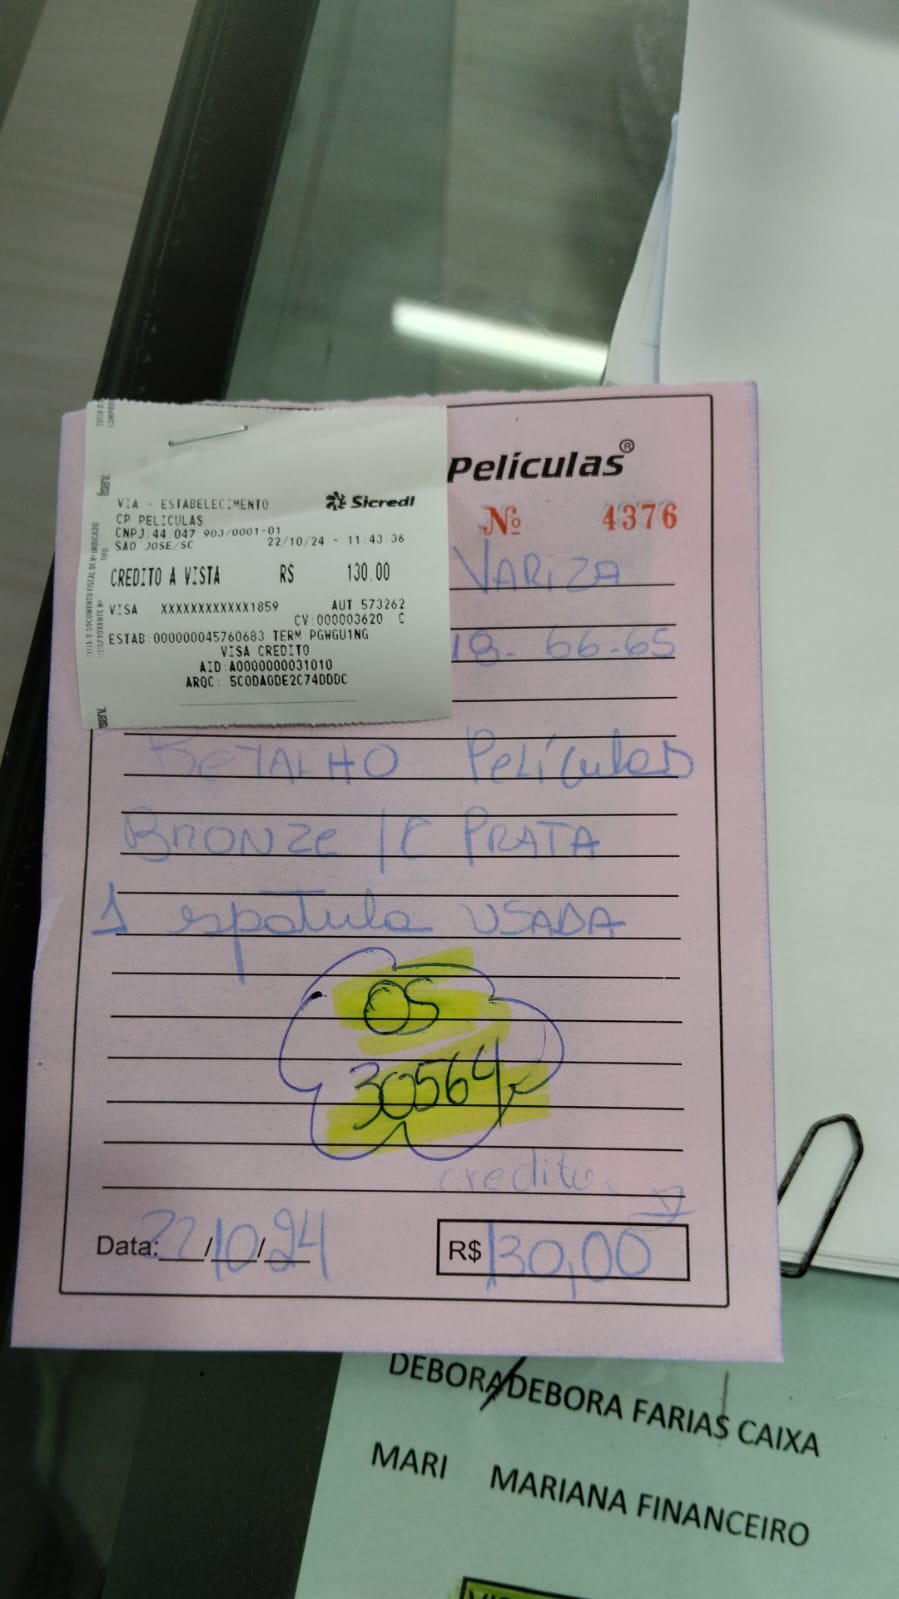 VIA - ESTABELECIMENTO
Sicredi
CP PELICULAS
CNPJ:44.047.903/0001-01
SAO JOSE/SC
22/10/24 - 11:43:36
CREDITO A VISTA R$ 130.00
VISA XXXXXXXXXXXX1859 AUT 573262
CV:000003620 C
ESTAB:000000045760683 TERM PGWGU1NG
VISA CREDITO
AID:A0000000031010
ARQC: 5C0DA0DE2C74DDDC
fiserv.
Películas®
Nº 4376
VARIZA
18-66-65
RETALHO Películas
BRONZE PRATA
1 espatula USADA
OS
30564
credito
Data: 22/10/24
R$ 130,00
DEBORA DEBORA FARIAS CAIXA
MARI MARIANA FINANCEIRO